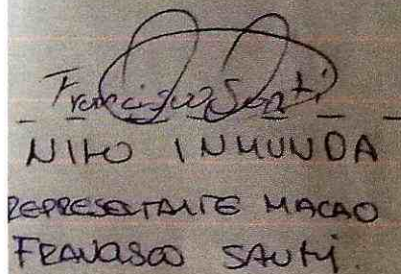 Francisco Santi
NITO INMUNDA
REPRESENTANTE MACAO
FRANCISCO SANTI.